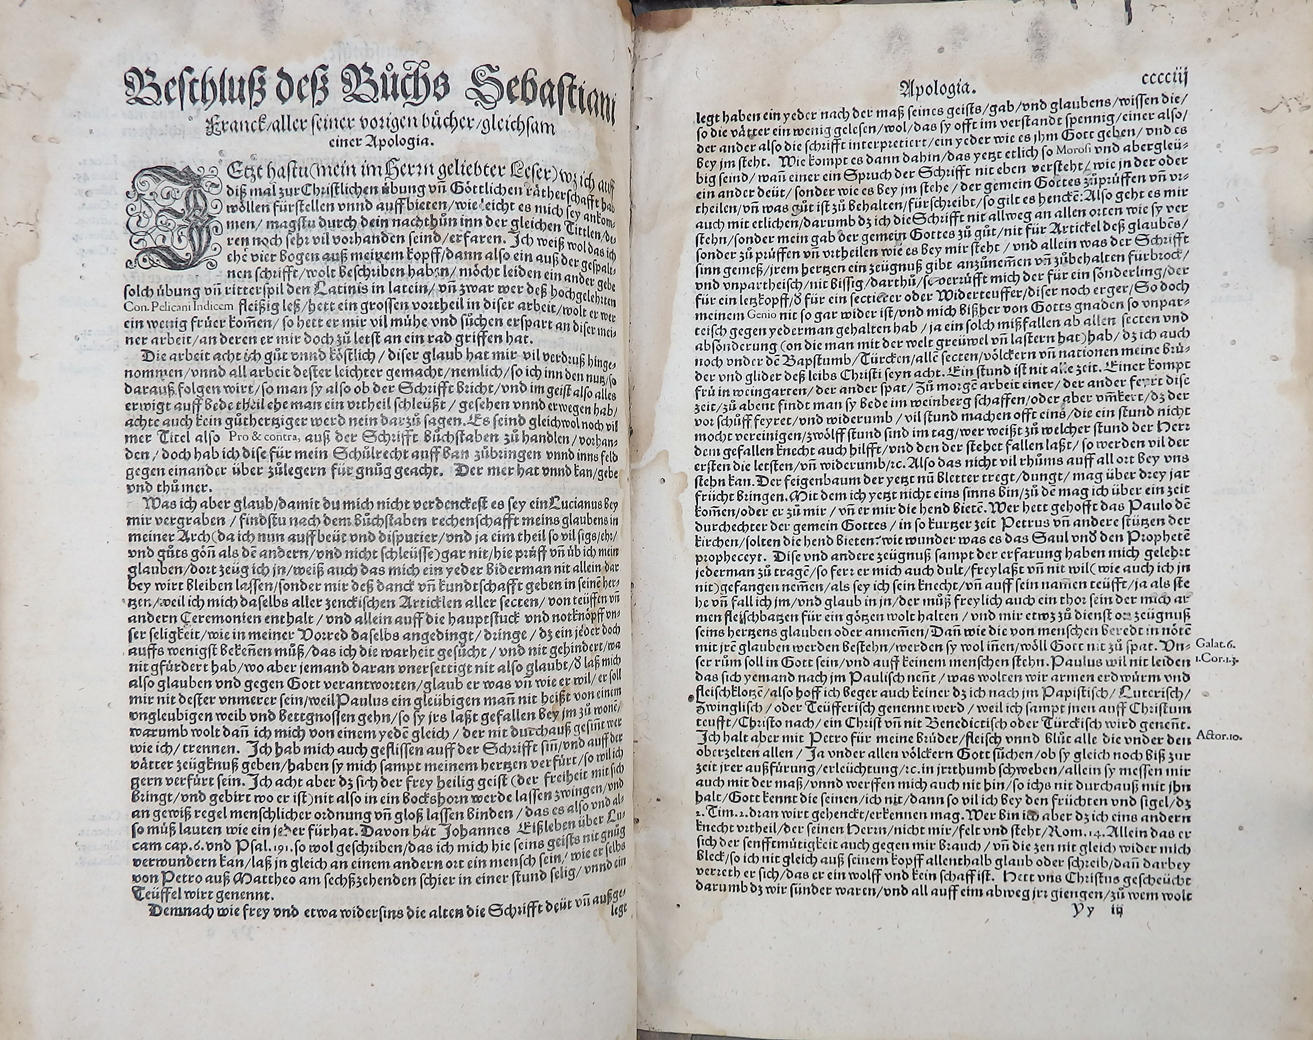 Beschluß deß Bůchs Sebastiani
Franck/aller seiner vorigen bücher/gleichsam
einer Apologia.
JEtzt hastu (mein im Herrn geliebter Leser) wz ich auff
diß mal zur Christlichen übung vñ Göttlichen rätherschafft hab
wöllen fürstellen vnnd auffbieten/wie leicht es mich sey ankom-
men/magstu durch dein nachthůn inn der gleichen Tittlen/de-
ren noch sehr vil vorhanden seind/erfaren. Ich weiß wol das ich
ehe vier bogen auß meinem kopff/dann also ein auß der gespalt-
nen schrifft/wolt beschriben haben/möcht leiden ein ander gebe
solch übung vñ ritterspil den Latinis in latein/vñ zwar wer deß hochgelehrten
Con. Pelicani Indicem fleißig leß/hett ein grossen vortheil in diser arbeit/wolt er wer
ein wenig früer kom̃en/so hett er mir vil mühe vnd sůchen erspart an diser mei-
ner arbeit/an deren er mir doch zů letst an ein rad griffen hat.
Die arbeit acht ich gůt vnnd köstlich/diser glaub hat mir vil verdruß hinge-
nommen/vnnd all arbeit dester leichter gemacht/nemlich/so ich inn den nutz/so
darauß folgen wirt/so man sy also ob der Schrifft bricht/vnd im geist also alles
erwigt auff bede theil ehe man ein vrtheil schleüßt/gesehen vnnd erwegen hab/
achte auch kein gůthertziger werd nein darzů sagen. Es seind gleichwol noch vil
mer Titel also Pro & contra, auß der Schrifft bůchstaben zů handlen/vorhan-
den/doch hab ich dise für mein Schůlrecht auff ban zůbringen vnnd inns feld
gegen einander über zůlegern für gnůg geacht. Der mer hat vnnd kan/gebe
vnd thů mer.
Was ich aber glaub/damit du mich nicht verdenckest es sey ein Lucianus bey
mir vergraben/findstu nach dem bůchstaben rechenschafft meins glaubens in
meiner Arch (da ich nun auffbeüt vnd disputier/vnd ja eim theil so vil sigs/ehr/
vnd gůts gön̄ als dē andern/vnd nicht schleüsse) gar nit/hie prüff vñ üb ich mein
glauben/dort zeüg ich jn/weiß auch das mich ein yeder biderman nit allein dar
bey wirt bleiben lassen/sonder mir deß danck vñ kundtschafft geben in seinē her-
tzen/weil ich mich daselbs aller zenckischen Articklen aller secten/von teüffen vñ
andern Ceremonien enthalt/vnd allein auff die hauptstuck vnd notknöpff vn-
ser seligkeit/wie in meiner Vorred daselbs angedingt/dringe/dz ein jeder doch
auffs wenigst bekennen můß/das ich die warheit gesůcht/vnd nit gehindert/wa
nit gfürdert hab/wo aber jemand daran vnersettigt nit also glaubt/ð laß mich
also glauben vnd gegen Gott verantworten/glaub er was vñ wie er wil/er soll
mir nit dester vnmerer sein/weil Paulus ein gleübigen man̄ nit heißt von einem
vngleubigen weib vnd bettgnossen gehn/so sy jrs laßt gefallen bey jm zů wonē/
warumb wolt dan̄ ich mich von einem yedē gleich/der nit durchauß gesin̄t wer
wie ich/trennen. Ich hab mich auch geflissen auff der Schrifft sin̄/vnd auff der
vätter zeügknuß geben/haben sy mich sampt meinem hertzen verfürt/so wil ich
gern verfürt sein. Ich acht aber dz sich der frey heilig geist (der freiheit mit sich
bringt/vnd gebirt wo er ist) nit also in ein bockshorn werde lassen zwingen/vnd
an gewiß regel menschlicher ordnung vñ gloß lassen binden/das es also vnd al-
so můß lauten wie ein jeder fürhat. Davon hat Johannes Eißleben über Lu-
cam cap. 6. vnd Psal. 191. so wol geschriben/das ich mich hie seins geists nit gnůg
verwundern kan/laß jn gleich an einem andern ort ein mensch sein/wie er selbs
von Petro auß Mattheo am sechßzehenden schier in einer stund selig/vnnd ein
Teüffel wirt genennt.
Demnach wie frey vnd etwa widersins die alten die Schrifft deüt vñ außge-
legt
Apologia. cccciij
legt haben ein yeder nach der maß seines geists/gab/vnd glaubens/wissen die/
so die vätter ein wenig gelesen/wol/das sy offt im verstandt spennig/einer also/
der ander also die schrifft interpretiert/ein yeder wie es ihm Gott geben/vnd es
bey jm steht. Wie kompt es dann dahin/das yetzt etlich so Morosi vnd abergleü-
big seind/wan̄ einer ein Spruch der Schrifft nit eben versteht/wie jn der oder
ein ander deüt/sonder wie es bey jm stehe/der gemein Gottes zůprüffen vñ vr-
theilen/vñ was gůt ist zů behalten/fürschreibt/so gilt es henckē: Also geht es mir
auch mit etlichen/darumb dz ich die Schrifft nit allweg an allen orten wie sy ver
stehn/sonder mein gab der gemein Gottes zů gůt/nit für Artickel deß glaubēs/
sonder zů prüffen vñ vrtheilen wie es bey mir steht/vnd allein was der Schrifft
sinn gemeß/jrem hertzen ein zeügnuß gibt anzůnem̃en vñ zůbehalten fürbrock/
vnd vnpartheisch/nit bissig/darthů/so verrüfft mich der für ein sönderling/der
für ein letzkopff/ð für ein sectierer oder Widerteuffer/diser noch erger/So doch
meinem Genio nit so gar wider ist/vnd mich bißher von Gotts gnaden so vnpar-
teisch gegen yederman gehalten hab/ja ein solch mißfallen ab allen secten vnd
absönderung (on die man mit der welt greüwel vñ lastern hat) hab/dz ich auch
noch vnder dē Bapstumb/Türcken/allē secten/völckern vñ nationen meine brů-
der vnd glider deß leibs Christi seyn acht. Ein stund ist nit alle zeit. Einer kompt
frů in weingarten/der ander spat/Zů morgē arbeit einer/der ander feyrt dise
zeit/zů abent findt man sy bede im weinberg schaffen/oder aber vm̄kert/dz der
vor schůff feyret/vnd widerumb/vil stund machen offt eins/die ein stund nicht
mocht vereinigen/zwölff stund sind im tag/wer weißt zů welcher stund der Herr
dem gefallen knecht auch hilfft/vnd den der stehet fallen laßt/so werden vil der
ersten die letsten/vñ widerumb/rc. Also das nicht vil rhůms auff all ort bey vns
stehn kan. Der feigenbaum der yetzt nů bletter tregt/dungt/mag über drey jar
frücht bringen. Mit dem ich yetzt nicht eins sinns bin/zů dē mag ich über ein zeit
kom̄en/oder er zů mir/vñ er mir die hend bietē. Wer hett gehofft das Paulo dē
durchechter der gemein Gottes/in so kurtzer zeit Petrus vñ andere stützen der
kirchen/solten die hend bieten: wie wunder was es das Saul vnd den Prophetē
propheceyt. Dise vnd andere zeügnuß sampt der erfarung haben mich gelehrt
jederman zů tragē/so ferr er mich auch dult/frey laßt vñ nit wil (wie auch ich jn
nit) gefangen nem̄en/als sey ich sein knecht/vñ auff sein namen teüfft/ja als ste
he vñ fall ich jm/vnd glaub in jn/der můß freylich auch ein thor sein der mich ar
men fleischbatzen für ein götzen wolt halten/vnd mir etwz zů dienst oð zeügnuß
seins hertzens glauben oder annem̄en/Dan̄ wie die von menschen beredt in nötē
mit jrē glauben werden bestehn/werden sy wol iñen/wöll Gott nit zů spat. Vn-
ser rům soll in Gott sein/vnd auff keinem menschen stehn. Paulus wil nit leiden
das sich yemand nach jm Paulisch nen̄t/was wolten wir armen erdwürm vnd
fleischklötzē/also hoff ich beger auch keiner dz ich nach jm Papistisch/Luterisch/
Zwinglisch/oder Teüfferisch genennt werd/weil ich sampt jnen auff Christum
teufft/Christo nach/ein Christ vñ nit Benedictisch oder Türckisch wird genen̄t.
Ich halt aber mit Petro für meine brüder/fleisch vnnd blůt alle die vnder den
oberzelten allen/Ja vnder allen völckern Gott sůchen/ob sy gleich noch biß zur
zeit jrer außfürung/erleüchtung/rc. in jrrthumb schweben/allein sy messen mir
auch mit der maß/vnnd werffen mich auch nit hin/so ichs nit durchauß mit jhn
halt/Gott kennt die seinen/ich nit/dann so vil ich bey den früchten vnd sigel/dz
2. Tim. 2. dran wirt gehenckt/erkennen mag. Wer bin ich aber dz ich eins andern
knecht vrtheil/der seinen Herrn/nicht mir/felt vnd steht/Rom. 14. Allein das er
sich der senfftmütigkeit auch gegen mir brauch/vñ die zen nit gleich wider mich
bleck/so ich nit gleich auß seinem kopff allenthalb glaub oder schreib/dan̄ darbey
verreth er sich/das er ein wolff vnd kein schaff ist. Hett vns Christus gescheücht
darumb dz wir sünder waren/vnd all auff eim abweg jrr giengen/zů wem wolt
Yy iij
Galat. 6.
1. Cor. 1. 3.
Actor. 10.